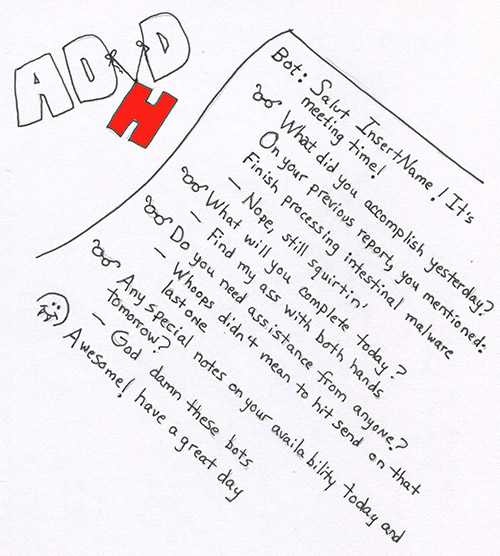 ADHD
Bot: Salut InsertName! It's
meeting time!
What did you accomplish yesterday?
On your previous report, you mentioned:
Finish processing intestinal malware
- Nope, still squirtin'
What will you complete today?
- Find my ass with both hands
Do you need assistance from anyone?
- Whoops didn't mean to hit send on that
last one
Any special notes on your availability today and
tomorrow?
- God damn these bots
Awesome! have a great day